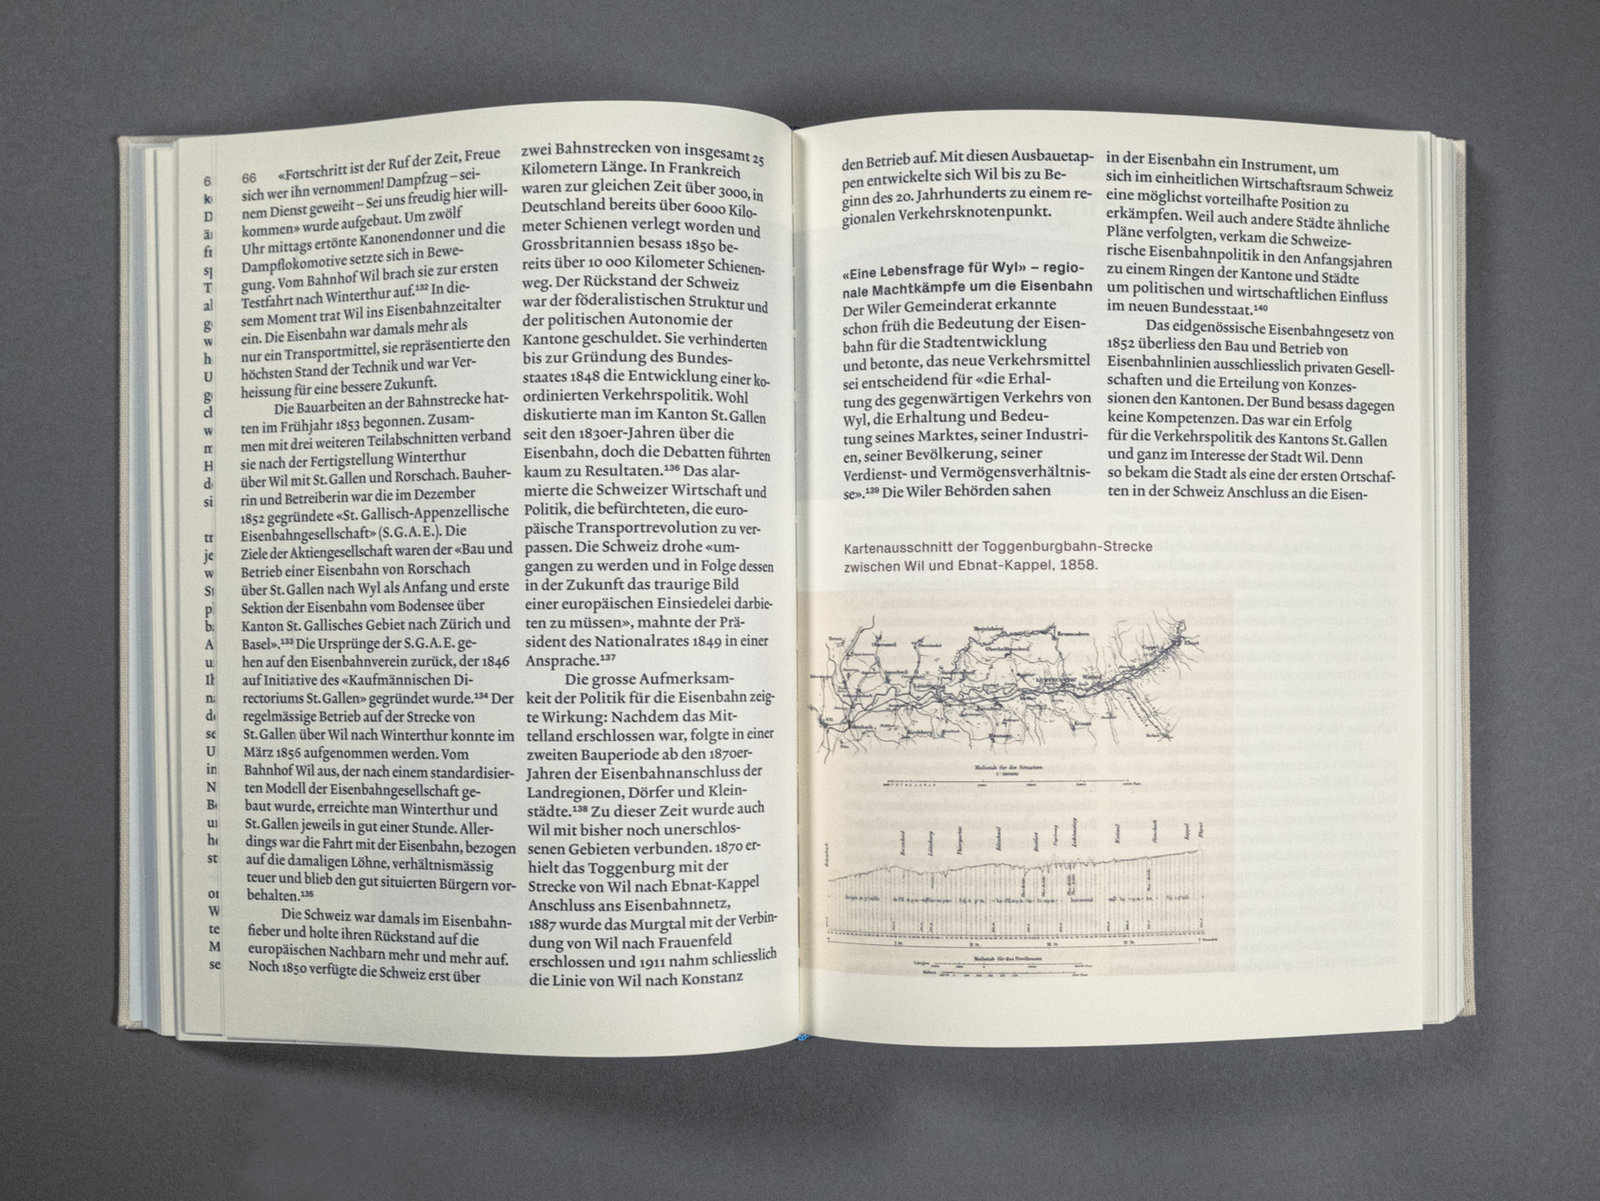 66 «Fortschritt ist der Ruf der Zeit, Freue
sich wer ihn vernommen! Dampfzug – sei-
nem Dienst geweiht – Sei uns freudig hier will-
kommen» wurde aufgebaut. Um zwölf
Uhr mittags ertönte Kanonendonner und die
Dampflokomotive setzte sich in Bewe-
gung. Vom Bahnhof Wil brach sie zur ersten
Testfahrt nach Winterthur auf.¹³² In die-
sem Moment trat Wil ins Eisenbahnzeitalter
ein. Die Eisenbahn war damals mehr als
nur ein Transportmittel, sie repräsentierte den
höchsten Stand der Technik und war Ver-
heissung für eine bessere Zukunft.
Die Bauarbeiten an der Bahnstrecke hat-
ten im Frühjahr 1853 begonnen. Zusam-
men mit drei weiteren Teilabschnitten verband
sie nach der Fertigstellung Winterthur
über Wil mit St. Gallen und Rorschach. Bauher-
rin und Betreiberin war die im Dezember
1852 gegründete «St. Gallisch-Appenzellische
Eisenbahngesellschaft» (S.G.A.E.). Die
Ziele der Aktiengesellschaft waren der «Bau und
Betrieb einer Eisenbahn von Rorschach
über St. Gallen nach Wyl als Anfang und erste
Sektion der Eisenbahn vom Bodensee über
Kanton St. Gallisches Gebiet nach Zürich und
Basel».¹³³ Die Ursprünge der S.G.A.E. ge-
hen auf den Eisenbahnverein zurück, der 1846
auf Initiative des «Kaufmännischen Di-
rectoriums St. Gallen» gegründet wurde.¹³⁴ Der
regelmässige Betrieb auf der Strecke von
St. Gallen über Wil nach Winterthur konnte im
März 1856 aufgenommen werden. Vom
Bahnhof Wil aus, der nach einem standardisier-
ten Modell der Eisenbahngesellschaft ge-
baut wurde, erreichte man Winterthur und
St. Gallen jeweils in gut einer Stunde. Aller-
dings war die Fahrt mit der Eisenbahn, bezogen
auf die damaligen Löhne, verhältnismässig
teuer und blieb den gut situierten Bürgern vor-
behalten.¹³⁵
Die Schweiz war damals im Eisenbahn-
fieber und holte ihren Rückstand auf die
europäischen Nachbarn mehr und mehr auf.
Noch 1850 verfügte die Schweiz erst über
zwei Bahnstrecken von insgesamt 25
Kilometern Länge. In Frankreich
waren zur gleichen Zeit über 3000, in
Deutschland bereits über 6000 Kilo-
meter Schienen verlegt worden und
Grossbritannien besass 1850 be-
reits über 10 000 Kilometer Schienen-
weg. Der Rückstand der Schweiz
war der föderalistischen Struktur und
der politischen Autonomie der
Kantone geschuldet. Sie verhinderten
bis zur Gründung des Bundes-
staates 1848 die Entwicklung einer ko-
ordinierten Verkehrspolitik. Wohl
diskutierte man im Kanton St. Gallen
seit den 1830er-Jahren über die
Eisenbahn, doch die Debatten führten
kaum zu Resultaten.¹³⁶ Das alar-
mierte die Schweizer Wirtschaft und
Politik, die befürchteten, die euro-
päische Transportrevolution zu ver-
passen. Die Schweiz drohe «um-
gangen zu werden und in Folge dessen
in der Zukunft das traurige Bild
einer europäischen Einsiedelei darbie-
ten zu müssen», mahnte der Prä-
sident des Nationalrates 1849 in einer
Ansprache.¹³⁷
Die grosse Aufmerksam-
keit der Politik für die Eisenbahn zeig-
te Wirkung: Nachdem das Mit-
telland erschlossen war, folgte in einer
zweiten Bauperiode ab den 1870er-
Jahren der Eisenbahnanschluss der
Landregionen, Dörfer und Klein-
städte.¹³⁸ Zu dieser Zeit wurde auch
Wil mit bisher noch unerschlos-
senen Gebieten verbunden. 1870 er-
hielt das Toggenburg mit der
Strecke von Wil nach Ebnat-Kappel
Anschluss ans Eisenbahnnetz,
1887 wurde das Murgtal mit der Verbin-
dung von Wil nach Frauenfeld
erschlossen und 1911 nahm schliesslich
die Linie von Wil nach Konstanz
den Betrieb auf. Mit diesen Ausbauetap-
pen entwickelte sich Wil bis zu Be-
ginn des 20. Jahrhunderts zu einem re-
gionalen Verkehrsknotenpunkt.
«Eine Lebensfrage für Wyl» – regio-
nale Machtkämpfe um die Eisenbahn
Der Wiler Gemeinderat erkannte
schon früh die Bedeutung der Eisen-
bahn für die Stadtentwicklung
und betonte, das neue Verkehrsmittel
sei entscheidend für «die Erhal-
tung des gegenwärtigen Verkehrs von
Wyl, die Erhaltung und Bedeu-
tung seines Marktes, seiner Industri-
en, seiner Bevölkerung, seiner
Verdienst- und Vermögensverhältnis-
se».¹³⁹ Die Wiler Behörden sahen
in der Eisenbahn ein Instrument, um
sich im einheitlichen Wirtschaftsraum Schweiz
eine möglichst vorteilhafte Position zu
erkämpfen. Weil auch andere Städte ähnliche
Pläne verfolgten, verkam die Schweize-
rische Eisenbahnpolitik in den Anfangsjahren
zu einem Ringen der Kantone und Städte
um politischen und wirtschaftlichen Einfluss
im neuen Bundesstaat.¹⁴⁰
Das eidgenössische Eisenbahngesetz von
1852 überliess den Bau und Betrieb von
Eisenbahnlinien ausschliesslich privaten Gesell-
schaften und die Erteilung von Konzes-
sionen den Kantonen. Der Bund besass dagegen
keine Kompetenzen. Das war ein Erfolg
für die Verkehrspolitik des Kantons St. Gallen
und ganz im Interesse der Stadt Wil. Denn
so bekam die Stadt als eine der ersten Ortschaf-
ten in der Schweiz Anschluss an die Eisen-
Kartenausschnitt der Toggenburgbahn-Strecke
zwischen Wil und Ebnat-Kappel, 1858.
Maßstab für die Situation
Maßstab für das Nivellement
Längen
Höhen